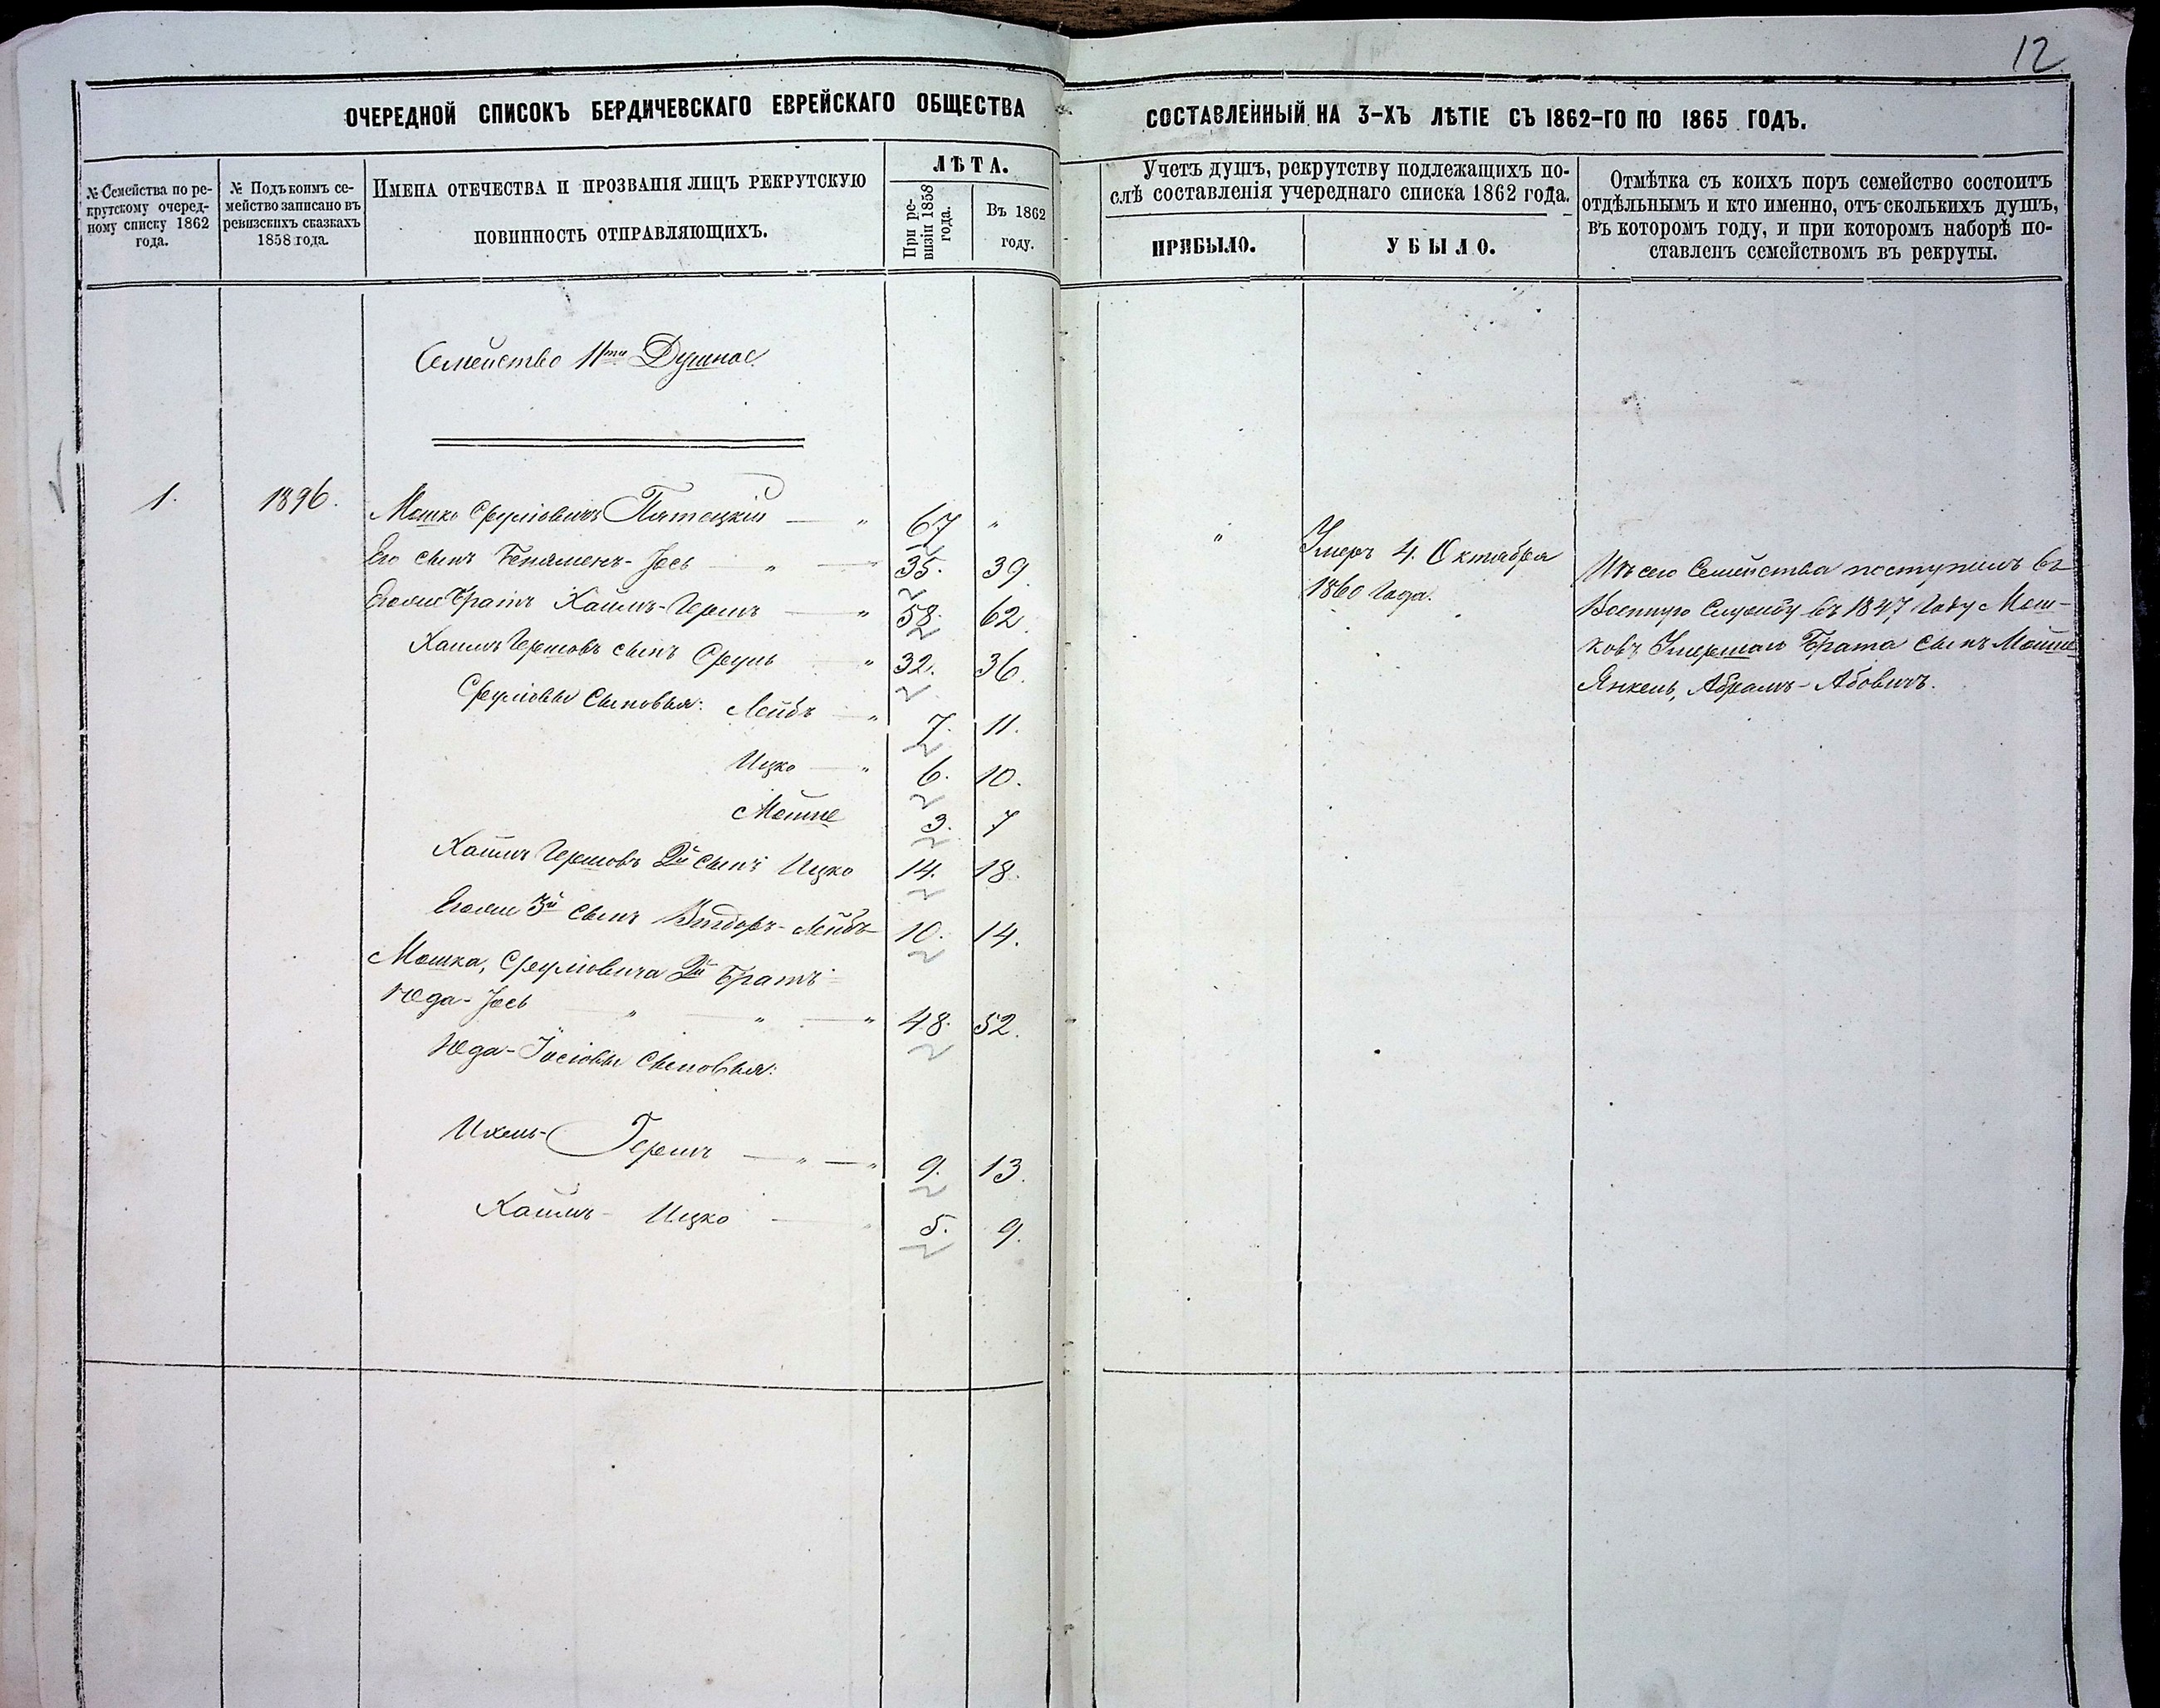 12
ОЧЕРЕДНОЙ СПИСОКЪ БЕРДИЧЕВСКАГО ЕВРЕЙСКАГО ОБЩЕСТВА
СОСТАВЛЕННЫЙ НА 3-ХЪ ЛѢТІЕ СЪ 1862-ГО ПО 1865 ГОДЪ.
№ Семейства по ре-
крутскому очеред-
ному списку 1862
года.
№ Подъ коимъ се-
мейство записано въ
ревизскихъ сказкахъ
1858 года.
ИМЕНА ОТЕЧЕСТВА И ПРОЗВАНІЯ ЛИЦЪ РЕКРУТСКУЮ
ПОВИННОСТЬ ОТПРАВЛЯЮЩИХЪ.
ЛѢТА.
При ре-
визіи 1858
года.
Въ 1862
году.
Учетъ душъ, рекрутству подлежащихъ по-
слѣ составленія учереднаго списка 1862 года.
ПРИБЫЛО.
УБЫЛО.
Отмѣтка съ коихъ поръ семейство состоитъ
отдѣльнымъ и кто именно, отъ сколькихъ душъ,
въ которомъ году, и при которомъ наборѣ по-
ставленъ семействомъ въ рекруты.
Семейство 11ти Душное
1. 1896. Мошко Сруліовичъ 67 "
Его сынъ Беняменъ-Іось " 35. 39
Егоже Братъ Хаимъ-Гершъ " 58. 62.
Хаимъ Гершовъ сынъ Сруль " 32. 36.
Сруліовы Сыновья: Лейбъ " 7. 11.
Ицко " 6. 10.
Мошие 3. 7
Хаимъ Гершовъ 2й сынъ Ицко 14. 18.
Егоже 3й сынъ -Лейбъ 10. 14.
Мошка, Сруліовича 2й Братъ
Юда-Іось " " " 48. 52.
Юда-Іосіовы Сыновья:
Ихель-Гершъ " " 9. 13.
Хаимъ-Ицко 5. 9.
" Умеръ 4. Октября
1860 года.
Изъ сего Семейства поступилъ въ
Военную Службу въ 1847 Году Мош-
ковъ Умершаго Брата сынъ Мошие
Янкель, Абрамъ-Абовичъ.